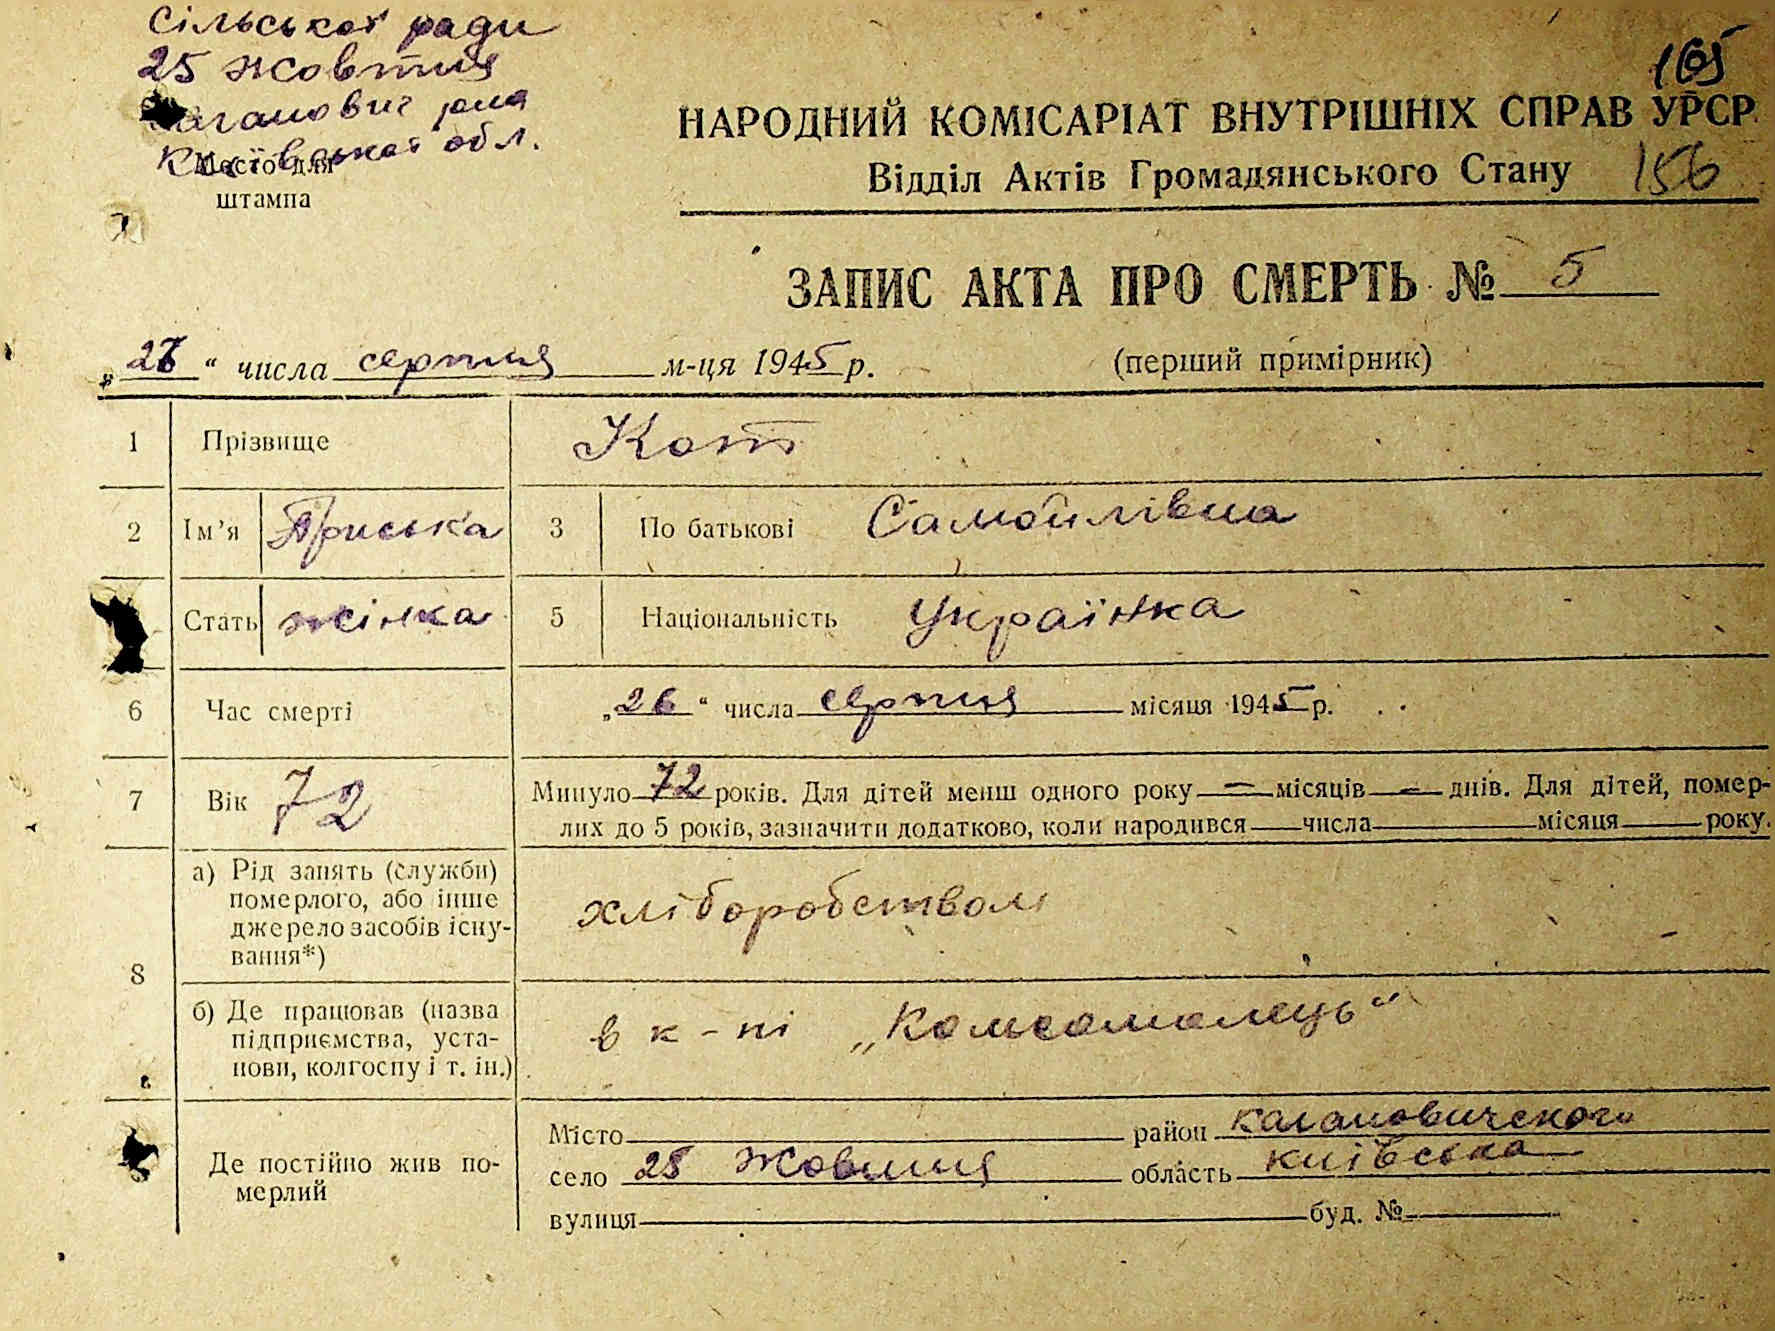 Сільської ради
25 Жовтня
Каганович р-на
Київської обл.
Місто для
штампа
165
НАРОДНИЙ КОМІСАРІАТ ВНУТРІШНІХ СПРАВ УРСР
Відділ Актів Громадянського Стану 156
ЗАПИС АКТА ПРО СМЕРТЬ № 5
„ “ числа серпня м-ця 1945 р. (перший примірник)
1 Прізвище Кот
2 Ім’я Приська 3 По батькові Самойлівна
Стать жінка 5 Національність Українка
6 Час смерті „26“ числа серпня місяця 1945 р.
7 Вік 72 Минуло 72 років. Для дітей менш одного року — місяців — днів. Для дітей, помер-
лих до 5 років, зазначити додатково, коли народився числа місяця року.
8 а) Рід занять (служби)
померлого, або інше
джерело засобів існу-
вання*)
хліборобством
б) Де працював (назва
підприємства, уста-
нови, колгоспу і т. ін.)
в к-пі „Комсомолець“
Де постійно жив по-
мерлий
Місто район Кагановичского
село 25 Жовтня область київська
вулиця буд. №